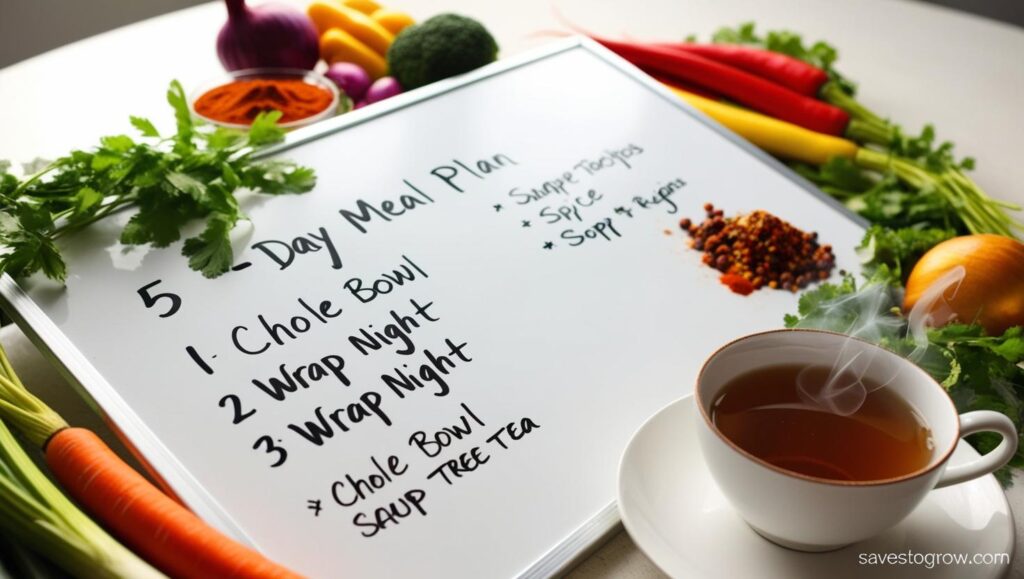 5 - Day Meal Plan
1. Chole Bowl
2 Wrap Night
3. Wrap Night
* Chole Bowl
SAUP TREE TEA
* Spice
* Sopp
savestogrow.com